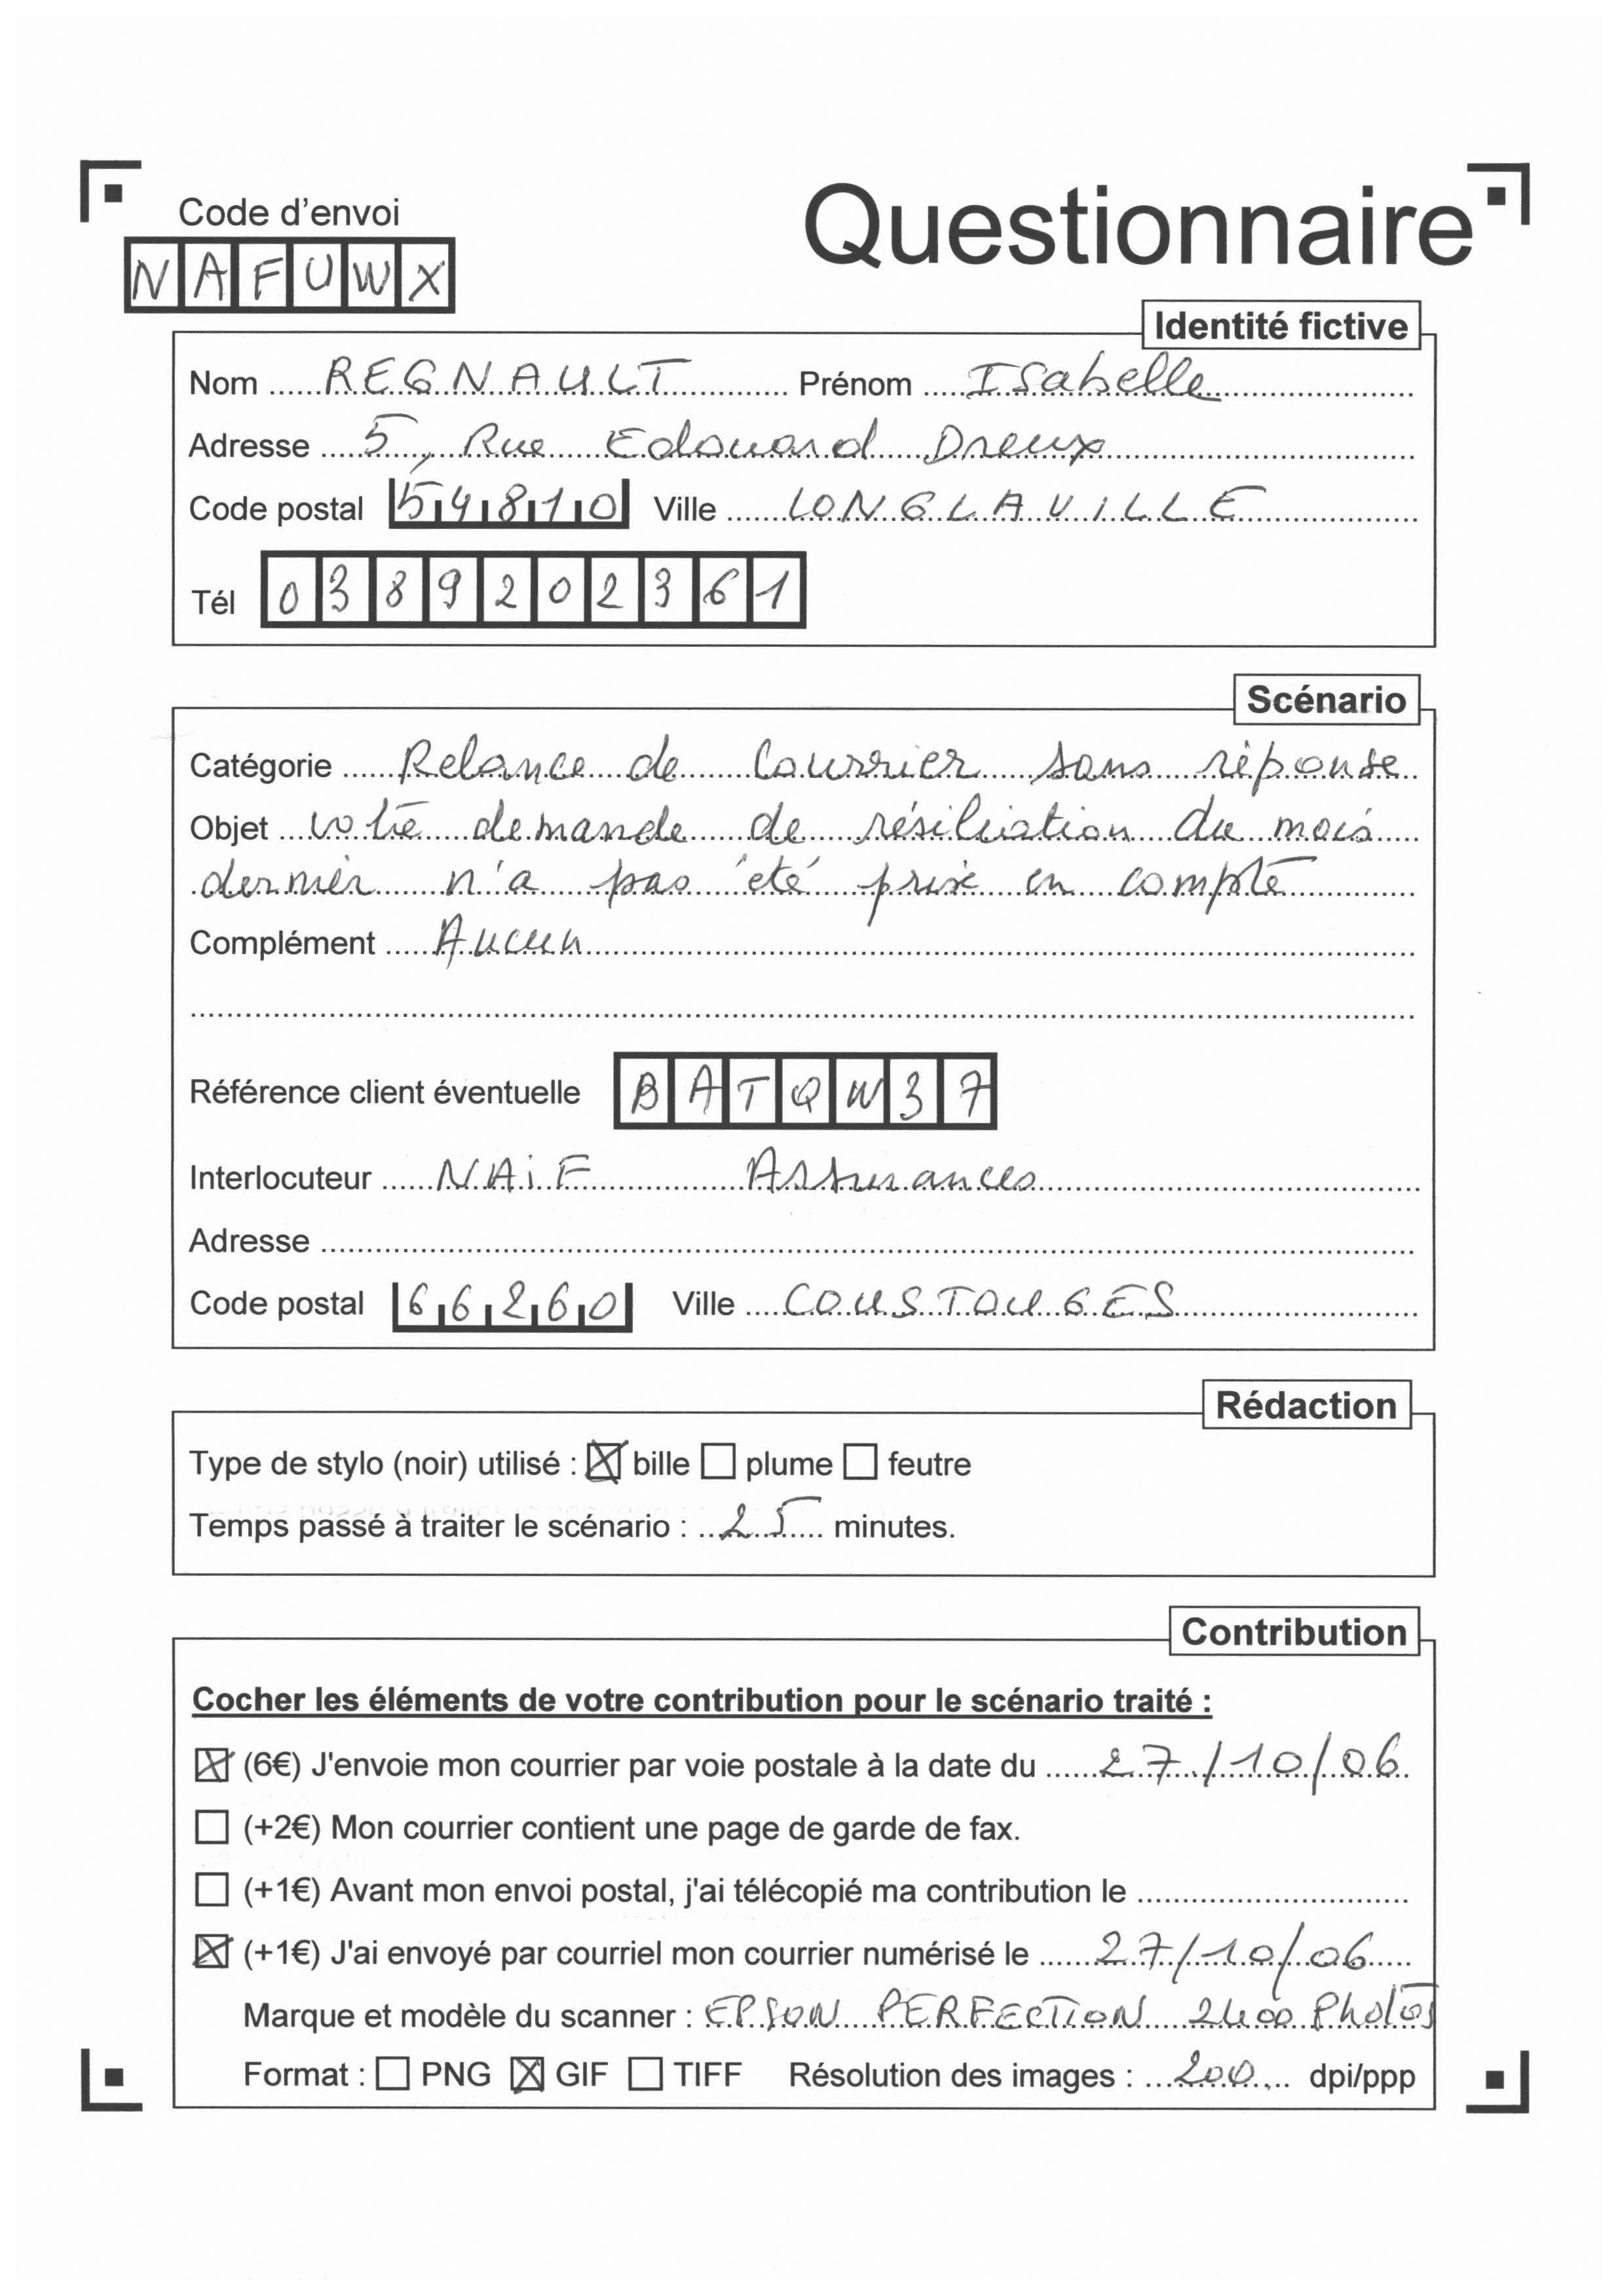 Code d'envoi
Questionnaire
NAFUWX
Identité fictive
Nom ...... REGNAULT ...... Prénom ..... Isabelle
Adresse ..... 5, Rue Edouard Dreux
Code postal 54810 Ville ...... LONGLAVILLE
Tél 0389202361
Scénario
Catégorie ..... Relance de Courrier sans réponse
Objet ... votre demande de résiliation du mois
dernier n'a pas été prise en compte
Complément ..... Aucun
Référence client éventuelle BATQW37
Interlocuteur ..... NAiF Assurances
Adresse
Code postal 66260 Ville .... COUSTOUGES
Rédaction
Type de stylo (noir) utilisé : ☒ bille ☐ plume ☐ feutre
Temps passé à traiter le scénario : ..25.. minutes.
Contribution
Cocher les éléments de votre contribution pour le scénario traité :
☒ (6€) J'envoie mon courrier par voie postale à la date du ...... 27/10/06
☐ (+2€) Mon courrier contient une page de garde de fax.
☐ (+1€) Avant mon envoi postal, j'ai télécopié ma contribution le
☒ (+1€) J'ai envoyé par courriel mon courrier numérisé le ...... 27/10/06
Marque et modèle du scanner : EPSON PERFECTION 2400 Photos
Format : ☐ PNG ☒ GIF ☐ TIFF Résolution des images : ... 200 ... dpi/ppp